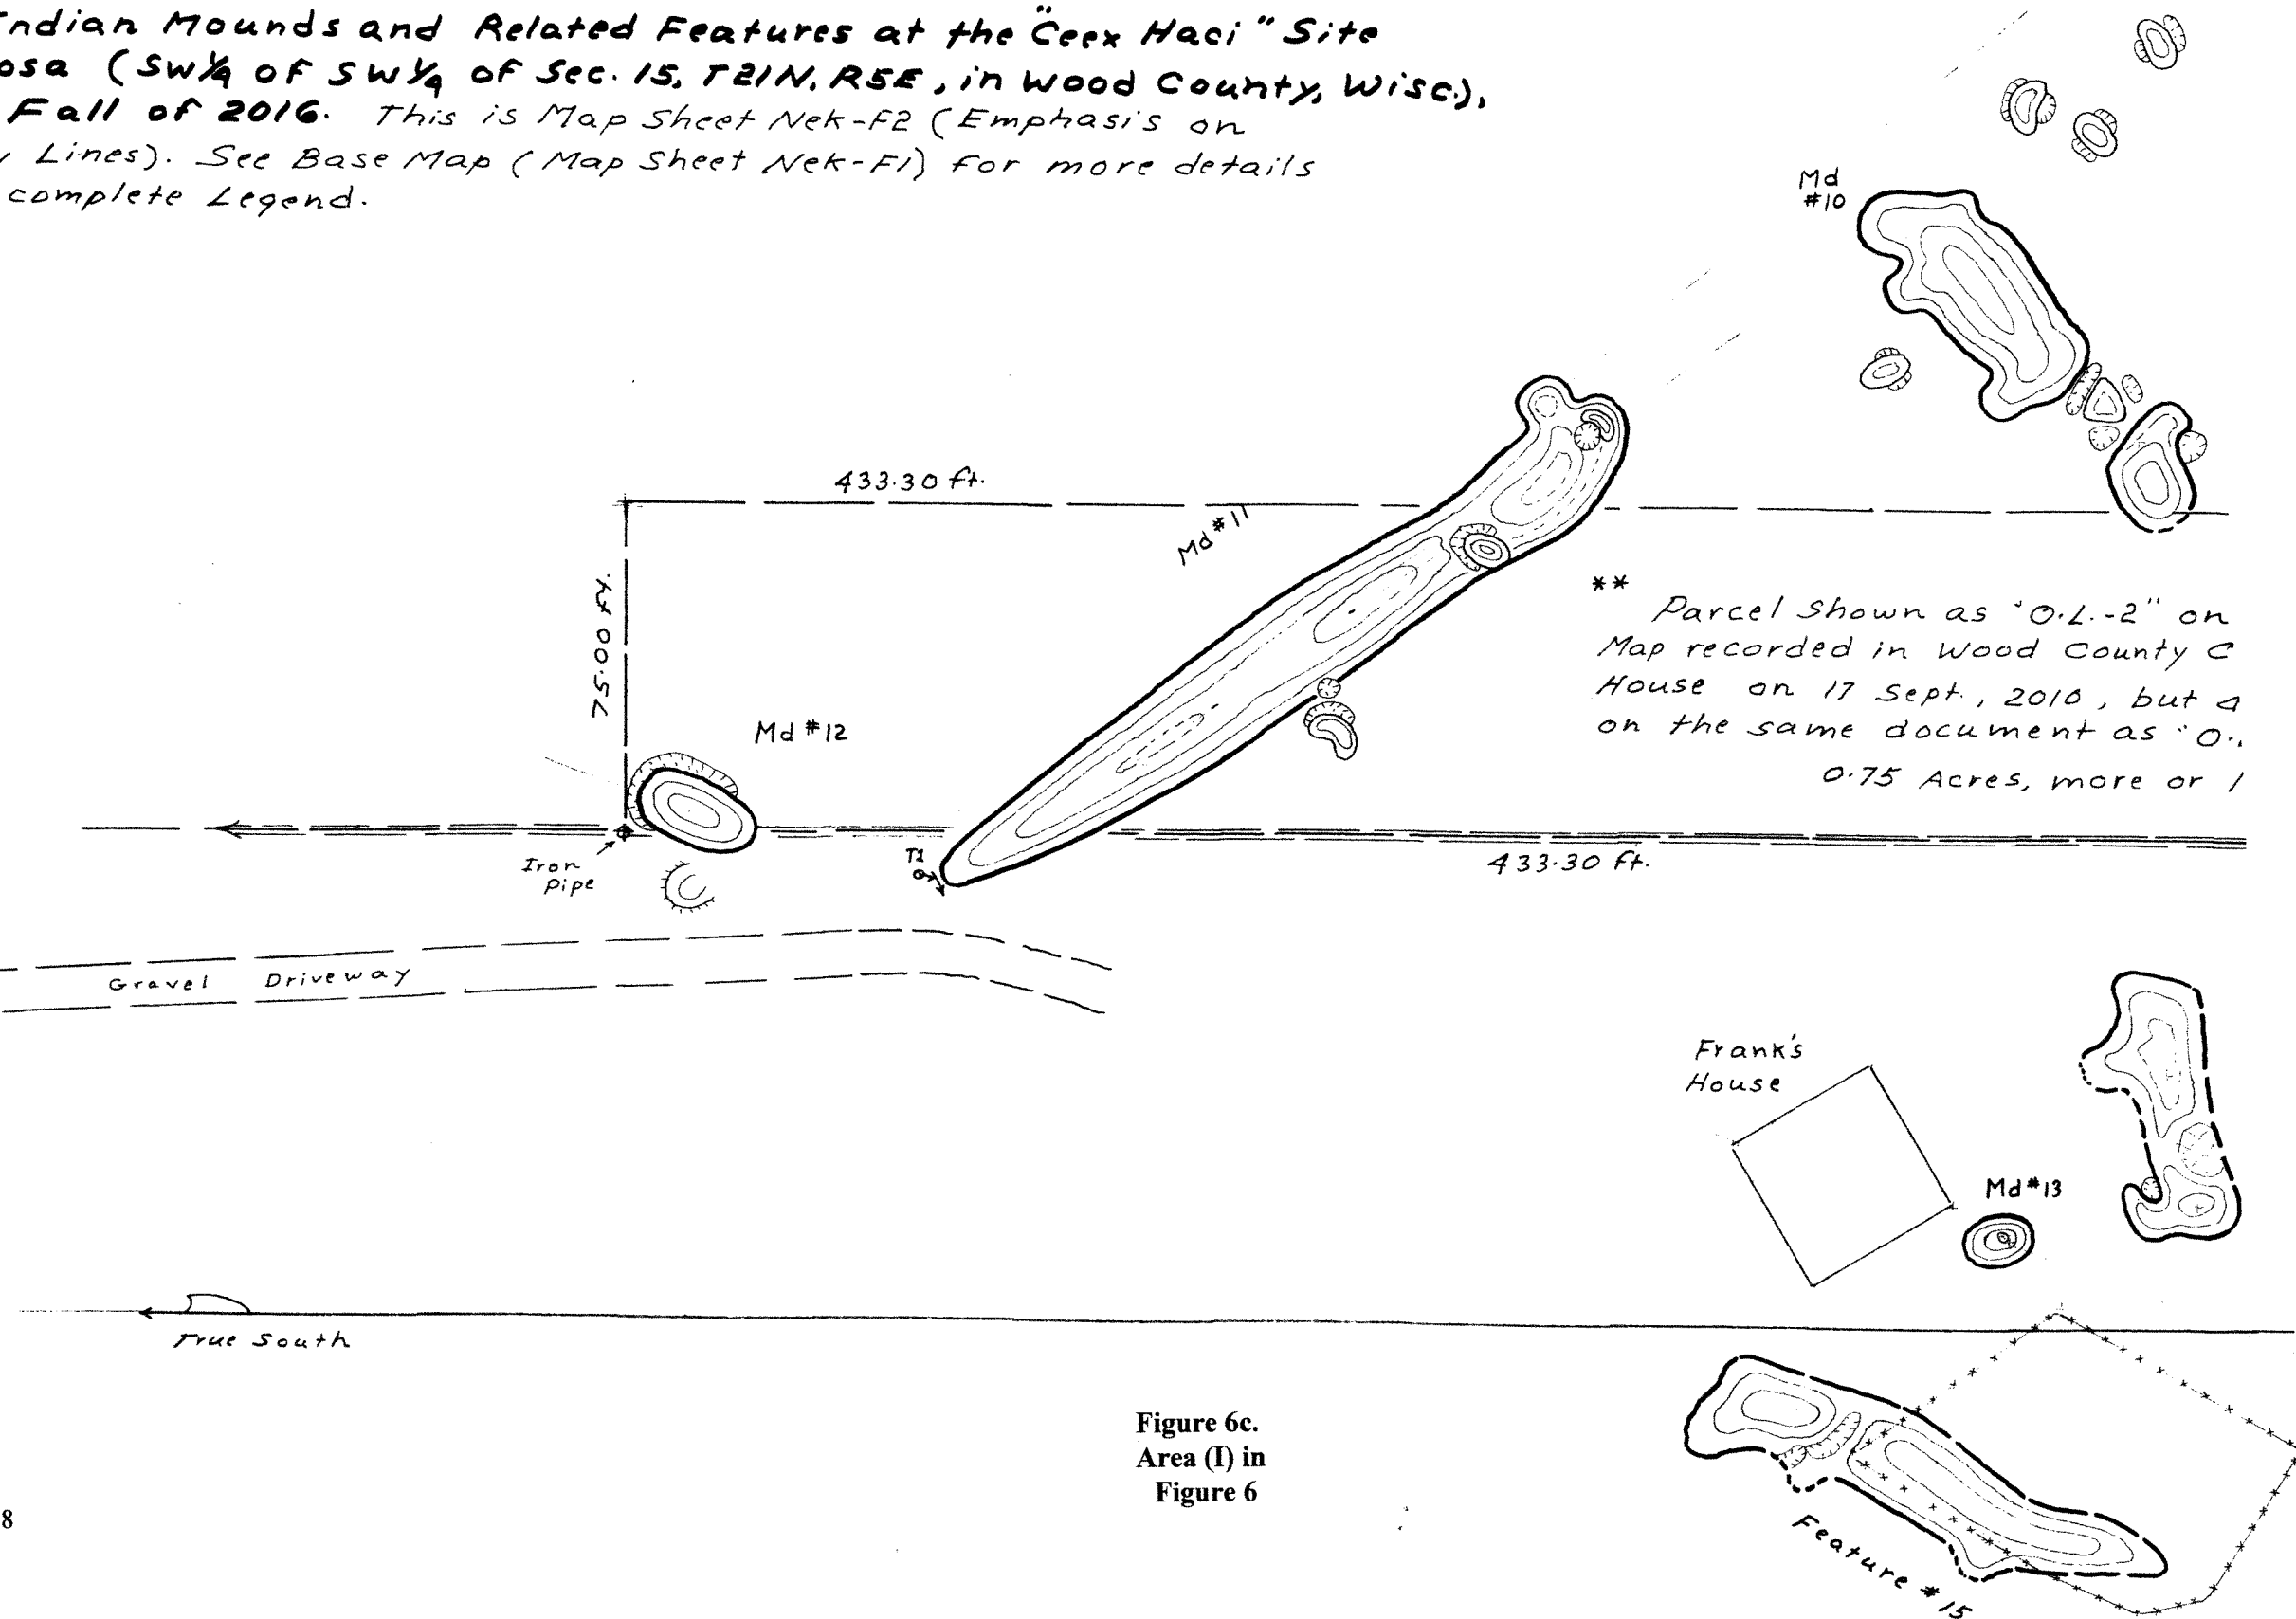 Indian Mounds and Related Features at the "Ceex Haci" Site
osa (SW¼ of SW¼ of Sec. 15, T21N, R5E, in Wood County, Wisc.),
Fall of 2016. This is Map Sheet Nek-F2 (Emphasis on
Lines). See Base Map (Map Sheet Nek-F1) for more details
complete Legend.
Md
#10
433.30 ft.
Md #11
75.00 ft.
**
Parcel shown as "O.L.-2" on
Map recorded in Wood County C
House on 17 Sept., 2010, but a
on the same document as "O.
0.75 Acres, more or l
Md #12
T1
Iron
pipe
433.30 ft.
Gravel Driveway
Frank's
House
Md #13
True South
Figure 6c.
Area (I) in
Figure 6
8
Feature #15